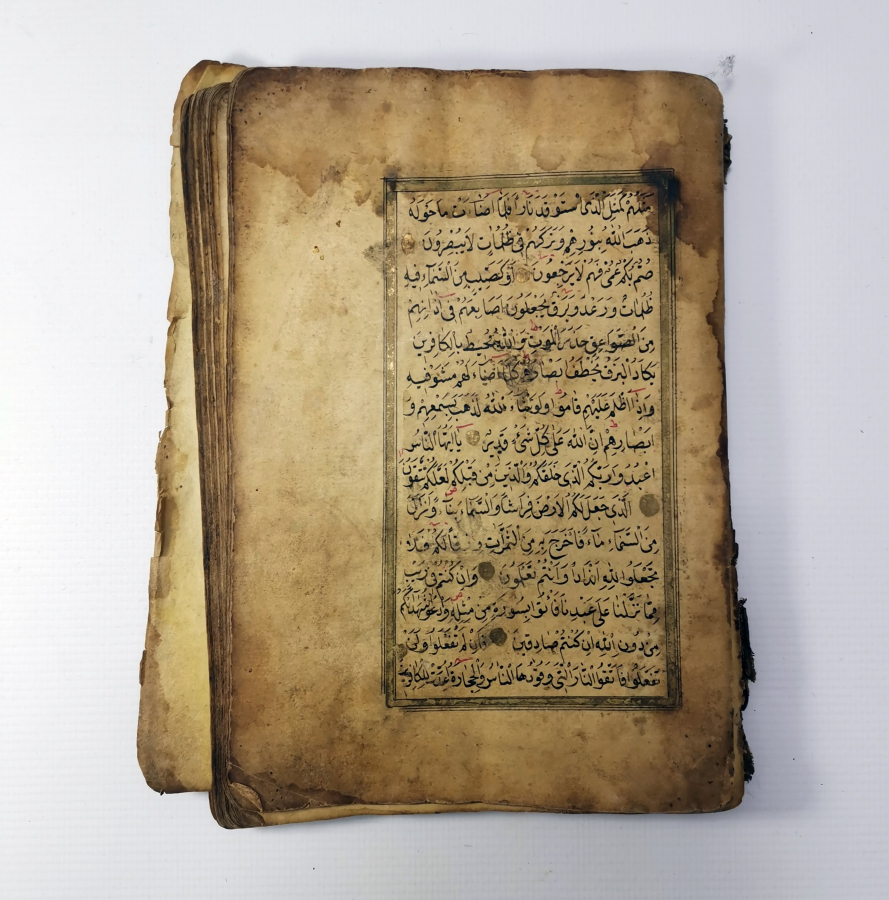 مَثَلُهُمْ كَمَثَلِ الَّذِى اسْتَوْقَدَ نَارًا فَلَمَّا اَضَاءَتْ مَا حَوْلَهُ
ذَهَبَ اللهُ بِنُورِهِمْ وَتَرَكَهُمْ فِى ظُلُمَاتٍ لَا يُبْصِرُونَ
صُمٌّ بُكْمٌ عُمْىٌ فَهُمْ لَا يَرْجِعُونَ اَوْ كَصَيِّبٍ مِنَ السَّمَاءِ فِيهِ
ظُلُمَاتٌ وَرَعْدٌ وَبَرْقٌ يَجْعَلُونَ اَصَابِعَهُمْ فِى اٰذَانِهِمْ
مِنَ الصَّوَاعِقِ حَذَرَ الْمَوْتِ وَاللهُ مُحِيطٌ بِالْكَافِرِينَ
يَكَادُ الْبَرْقُ يَخْطَفُ اَبْصَارَهُمْ كُلَّمَا اَضَاءَ لَهُمْ مَشَوْا فِيهِ
وَاِذَا اَظْلَمَ عَلَيْهِمْ قَامُوا وَلَوْ شَاءَ اللهُ لَذَهَبَ بِسَمْعِهِمْ وَ
اَبْصَارِهِمْ اِنَّ اللهَ عَلٰى كُلِّ شَىْءٍ قَدِيرٌ يَا اَيُّهَا النَّاسُ
اعْبُدُوا رَبَّكُمُ الَّذِى خَلَقَكُمْ وَالَّذِينَ مِنْ قَبْلِكُمْ لَعَلَّكُمْ تَتَّقُونَ
الَّذِى جَعَلَ لَكُمُ الْاَرْضَ فِرَاشًا وَالسَّمَاءَ بِنَاءً وَاَنْزَلَ
مِنَ السَّمَاءِ مَاءً فَاَخْرَجَ بِهِ مِنَ الثَّمَرَاتِ رِزْقًا لَكُمْ فَلَا
تَجْعَلُوا لِلّٰهِ اَنْدَادًا وَاَنْتُمْ تَعْلَمُونَ وَاِنْ كُنْتُمْ فِى رَيْبٍ
مِمَّا نَزَّلْنَا عَلٰى عَبْدِنَا فَأْتُوا بِسُورَةٍ مِنْ مِثْلِهِ وَادْعُوا شُهَدَاءَكُمْ
مِنْ دُونِ اللهِ اِنْ كُنْتُمْ صَادِقِينَ فَاِنْ لَمْ تَفْعَلُوا وَلَنْ
تَفْعَلُوا فَاتَّقُوا النَّارَ الَّتِى وَقُودُهَا النَّاسُ وَالْحِجَارَةُ اُعِدَّتْ لِلْكَافِرِينَ